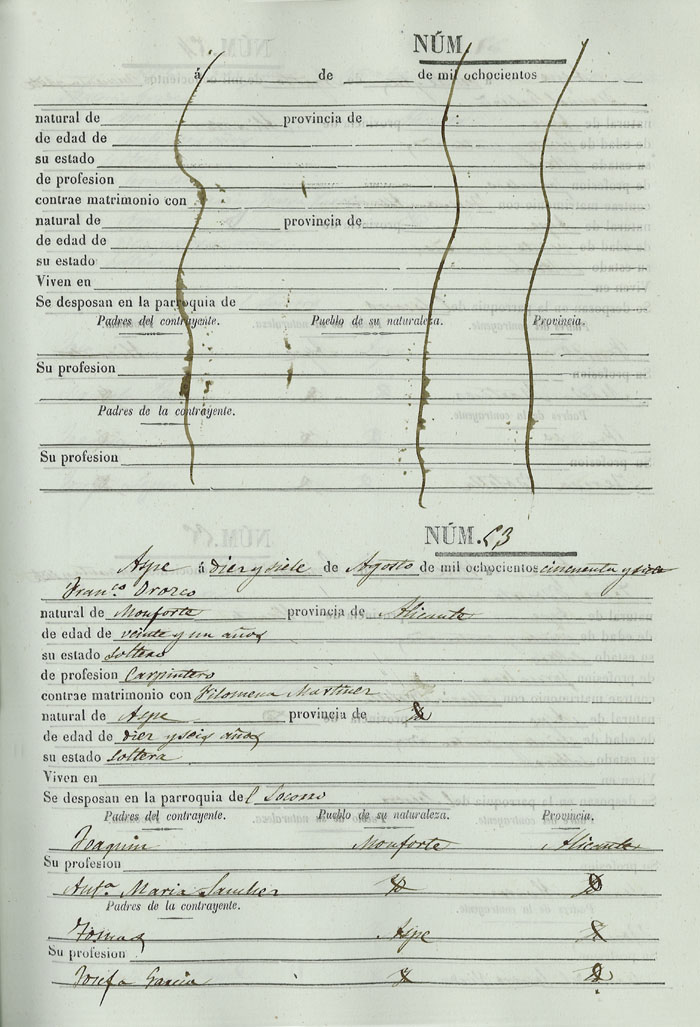 NÚM.
á de de mil ochocientos
natural de provincia de
de edad de
su estado
de profesion
contrae matrimonio con
natural de provincia de
de edad de
su estado
Viven en
Se desposan en la parroquia de
Padres del contrayente. Pueblo de su naturaleza. Provincia.
Su profesion
Padres de la contrayente.
Su profesion
NÚM. 53
Aspe á diez y siete de Agosto de mil ochocientos cincuenta y siete
Fran.co Orozco
natural de Monforte provincia de Alicante
de edad de veinte y un años
su estado soltero
de profesion Carpintero
contrae matrimonio con Filomena Martinez
natural de Aspe provincia de
de edad de diez y seis años
su estado soltera
Viven en
Se desposan en la parroquia del Socorro
Padres del contrayente. Pueblo de su naturaleza. Provincia.
Joaquin Monforte Alicante
Su profesion
Ant.a Maria Sanchez
Padres de la contrayente.
Tomas Aspe
Su profesion
Josefa Garcia